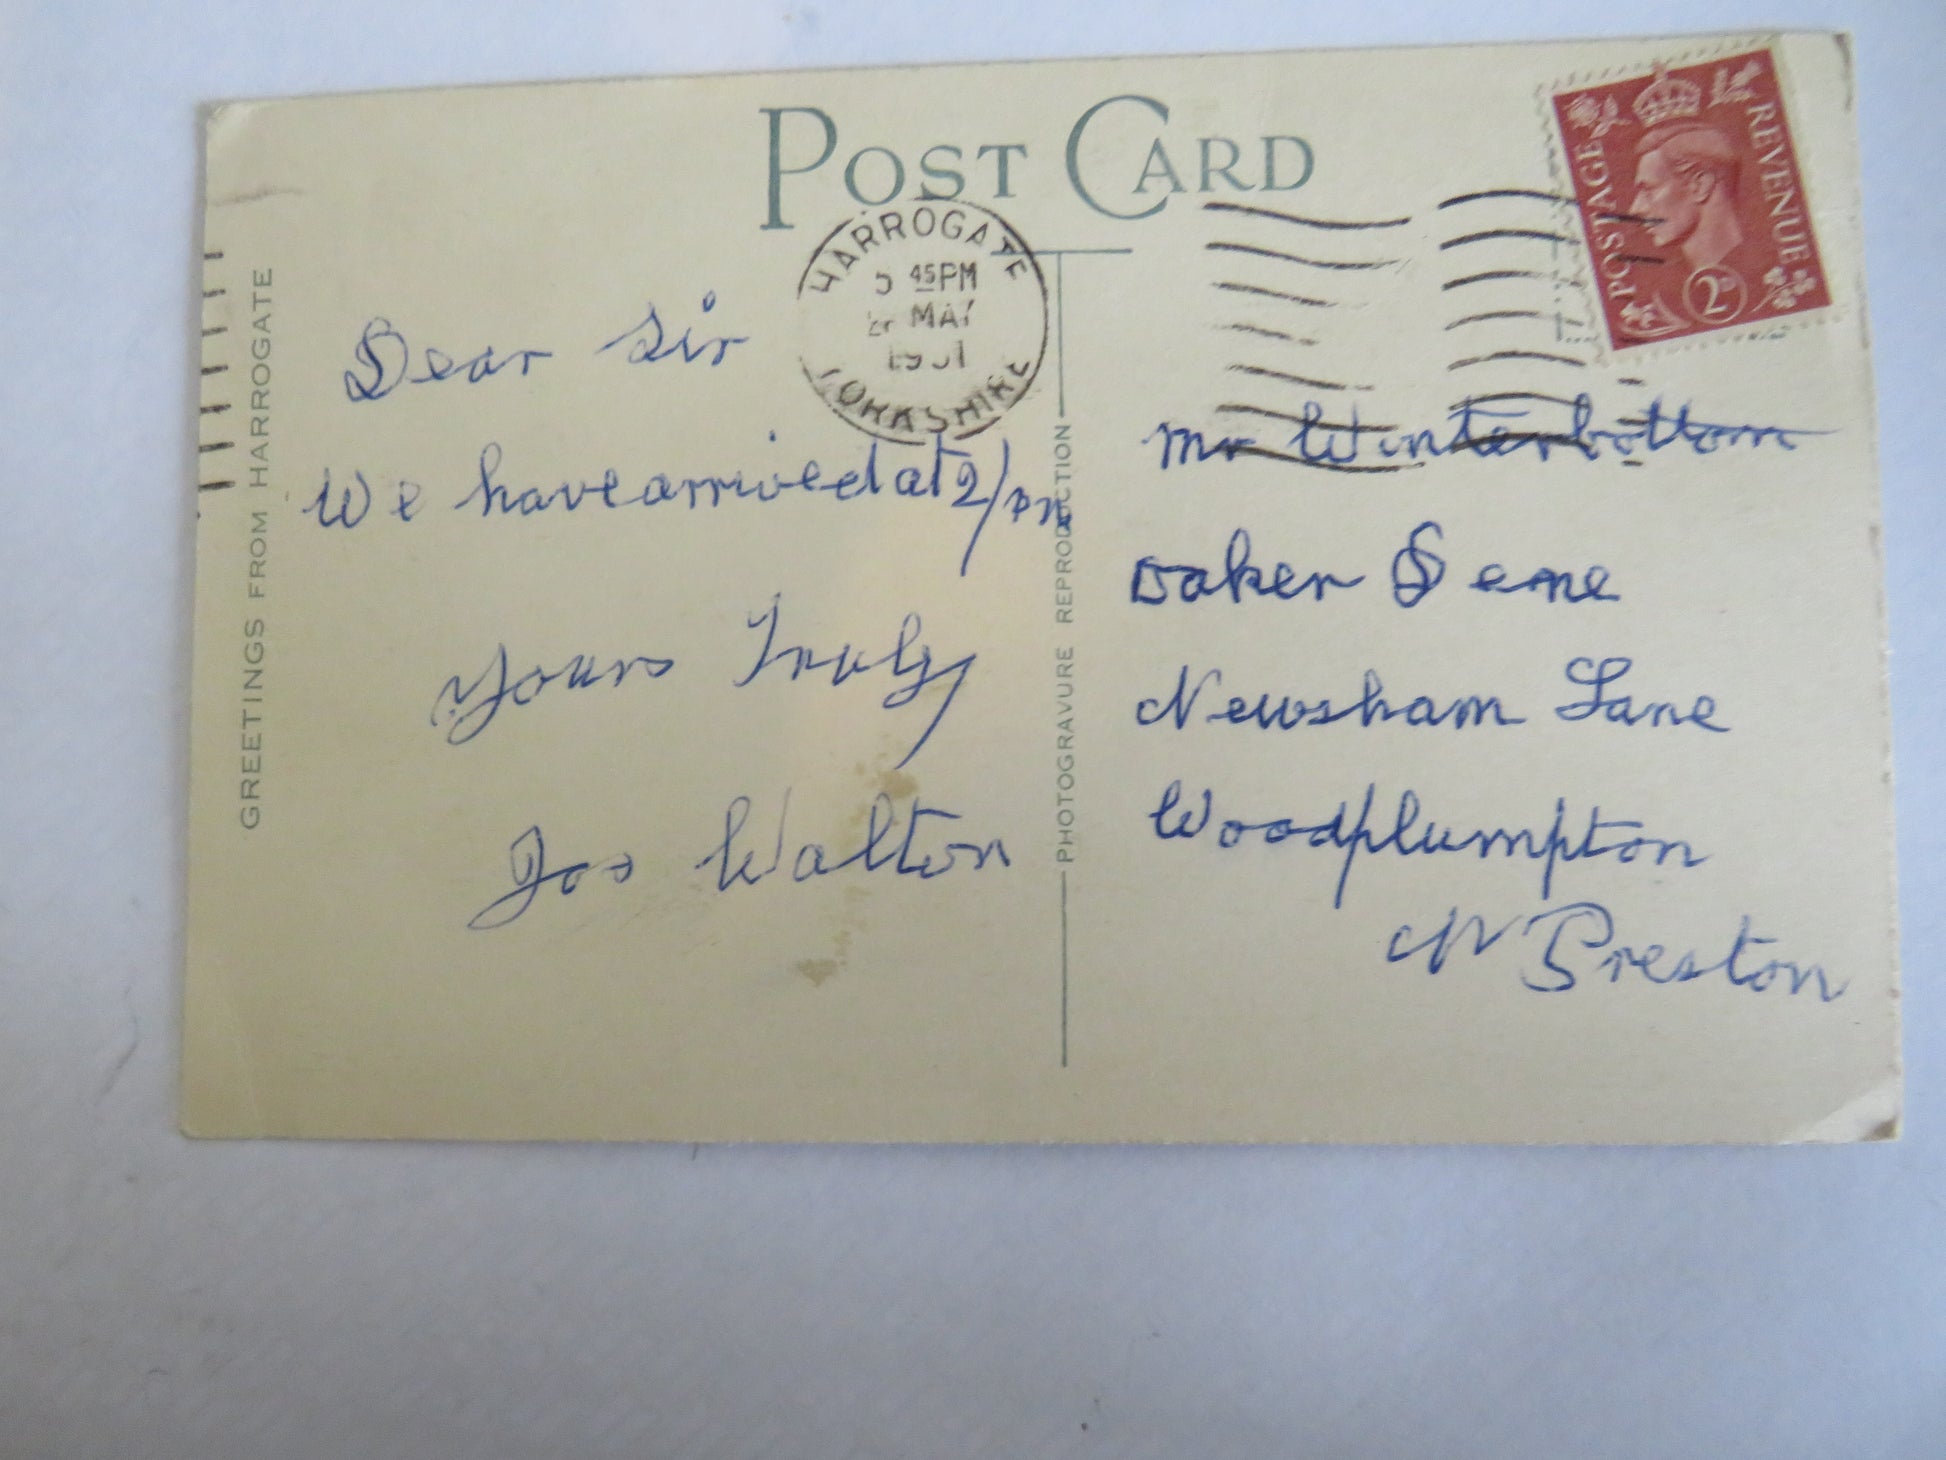 POST CARD
POSTAGE REVENUE
2D
HARROGATE
45PM
MAY
1951
YORKSHIRE
GREETINGS FROM HARROGATE
PHOTOGRAVURE REPRODUCTION
Dear Sir
We have arrived at 2/pm
Yours Truly
Jos Walton
Mr Winterbottom
Dene
Newsham Lane
Woodplumpton
Nr Preston